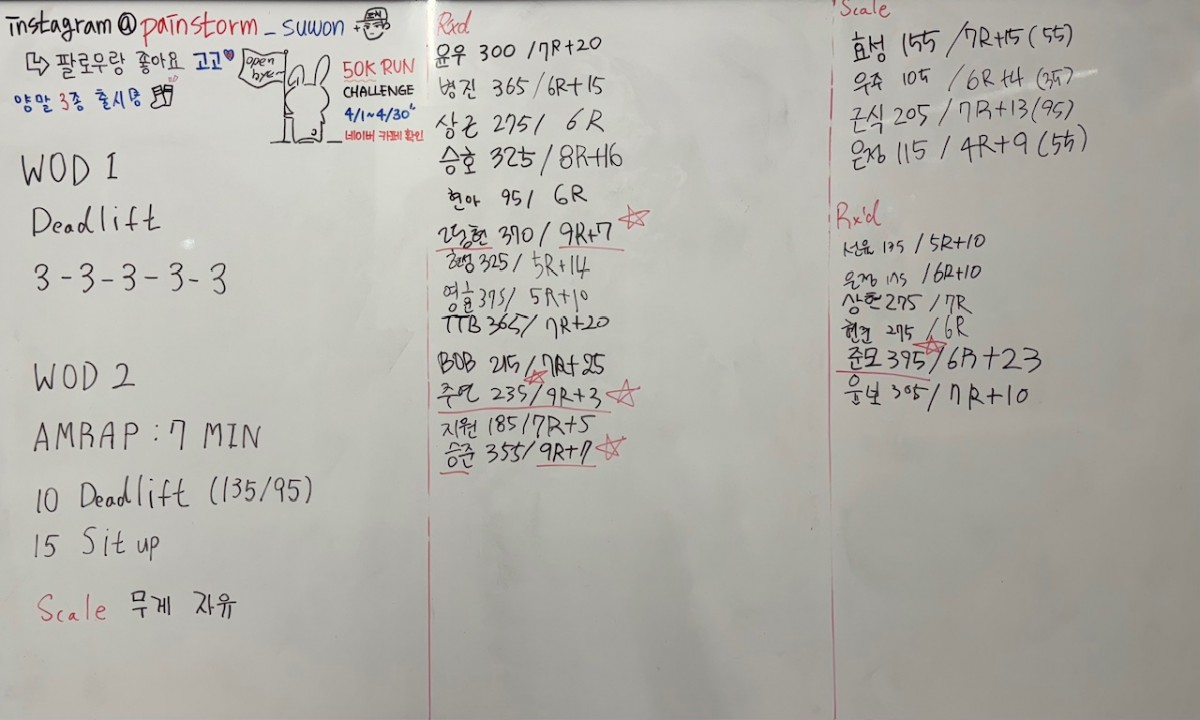 instagram@painstorm_suwon
팔로우랑 좋아요 고고
양말 3종 출시중
open
50K RUN
CHALLENGE
4/1~4/30
네이버 카페 확인
WOD 1
Deadlift
3-3-3-3-3
WOD 2
AMRAP : 7 MIN
10 Deadlift (135/95)
15 Sit up
Scale 무게 자유
Rxd
윤우 300 /7R+20
병진 365/6R+15
상근 275/ 6R
승호 325/8R+16
현아 95/ 6R
370/ 9R+7
325/ 5R+14
영훈 395/ 5R+10
TTB 365/ 7R+20
BOB 215/7R+25
주연 235/9R+3
지원 185/7R+5
승준 355/9R+7
Scale
효성 155 /7R+15 (55)
우주 105 /6R+4 (35)
근식 205 /7R+13 (95)
은정 115 / 4R+9 (55)
Rx'd
선유 135 /5R+10
은정 175 /6R+10
상현 275 /7R
현준 275 /6R
준모 395/6R+23
윤보 305/7R+10